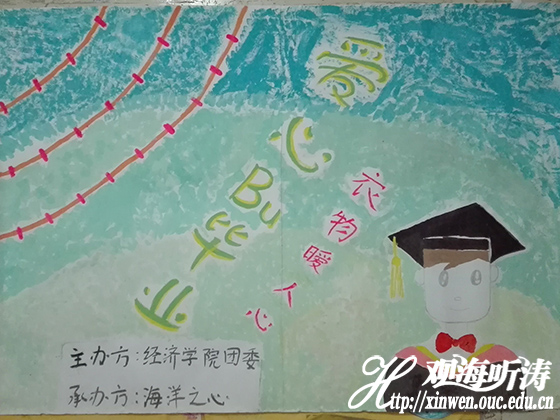 爱心Bu毕业
衣物暖人心
主办方:经济学院团委
承办方:海洋之心
观海听涛
http://xinwen.ouc.edu.cn